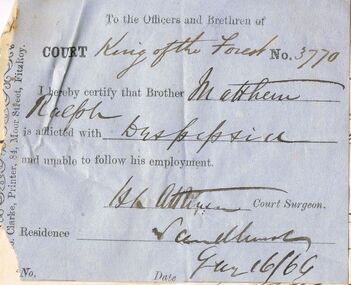 To the Officers and Brethren of
COURT King of the Forest No. 3770
I hereby certify that Brother Matthew
Ralph
is afflicted with Dyspepsia
and unable to follow his employment.
Court Surgeon.
Residence Sandhurst
No. Date 16/66
Clarke, Printer, 84, Moor Street, Fitzroy.